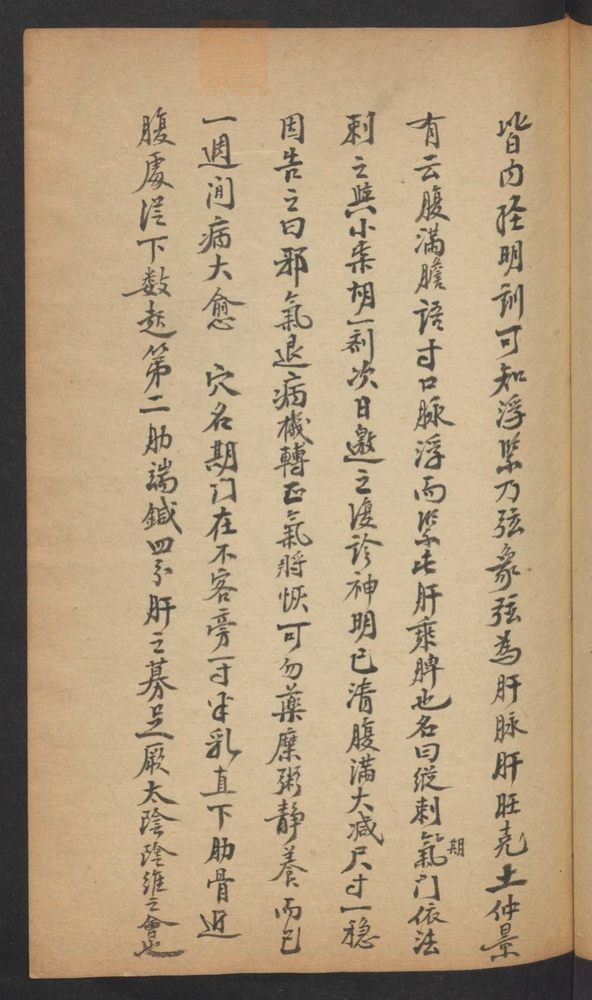 皆内经明訓可知浮紧乃弦象弦為肝脉肝旺克土仲景
有云腹满膽語寸口脉浮而紧此肝乘脾也名曰縱刺氣門依法
期
刺之與小柴胡一剂次日邀之復诊神明已清腹满大减尺寸一稳
因告之曰邪氣退病機轉正氣將恢可勿藥糜粥静養而已
一週间病大愈 穴名期门在不客旁一寸半乳直下肋骨近
腹處従下数起第二肋端鍼四分肝之募足厥太陰陰維之會也